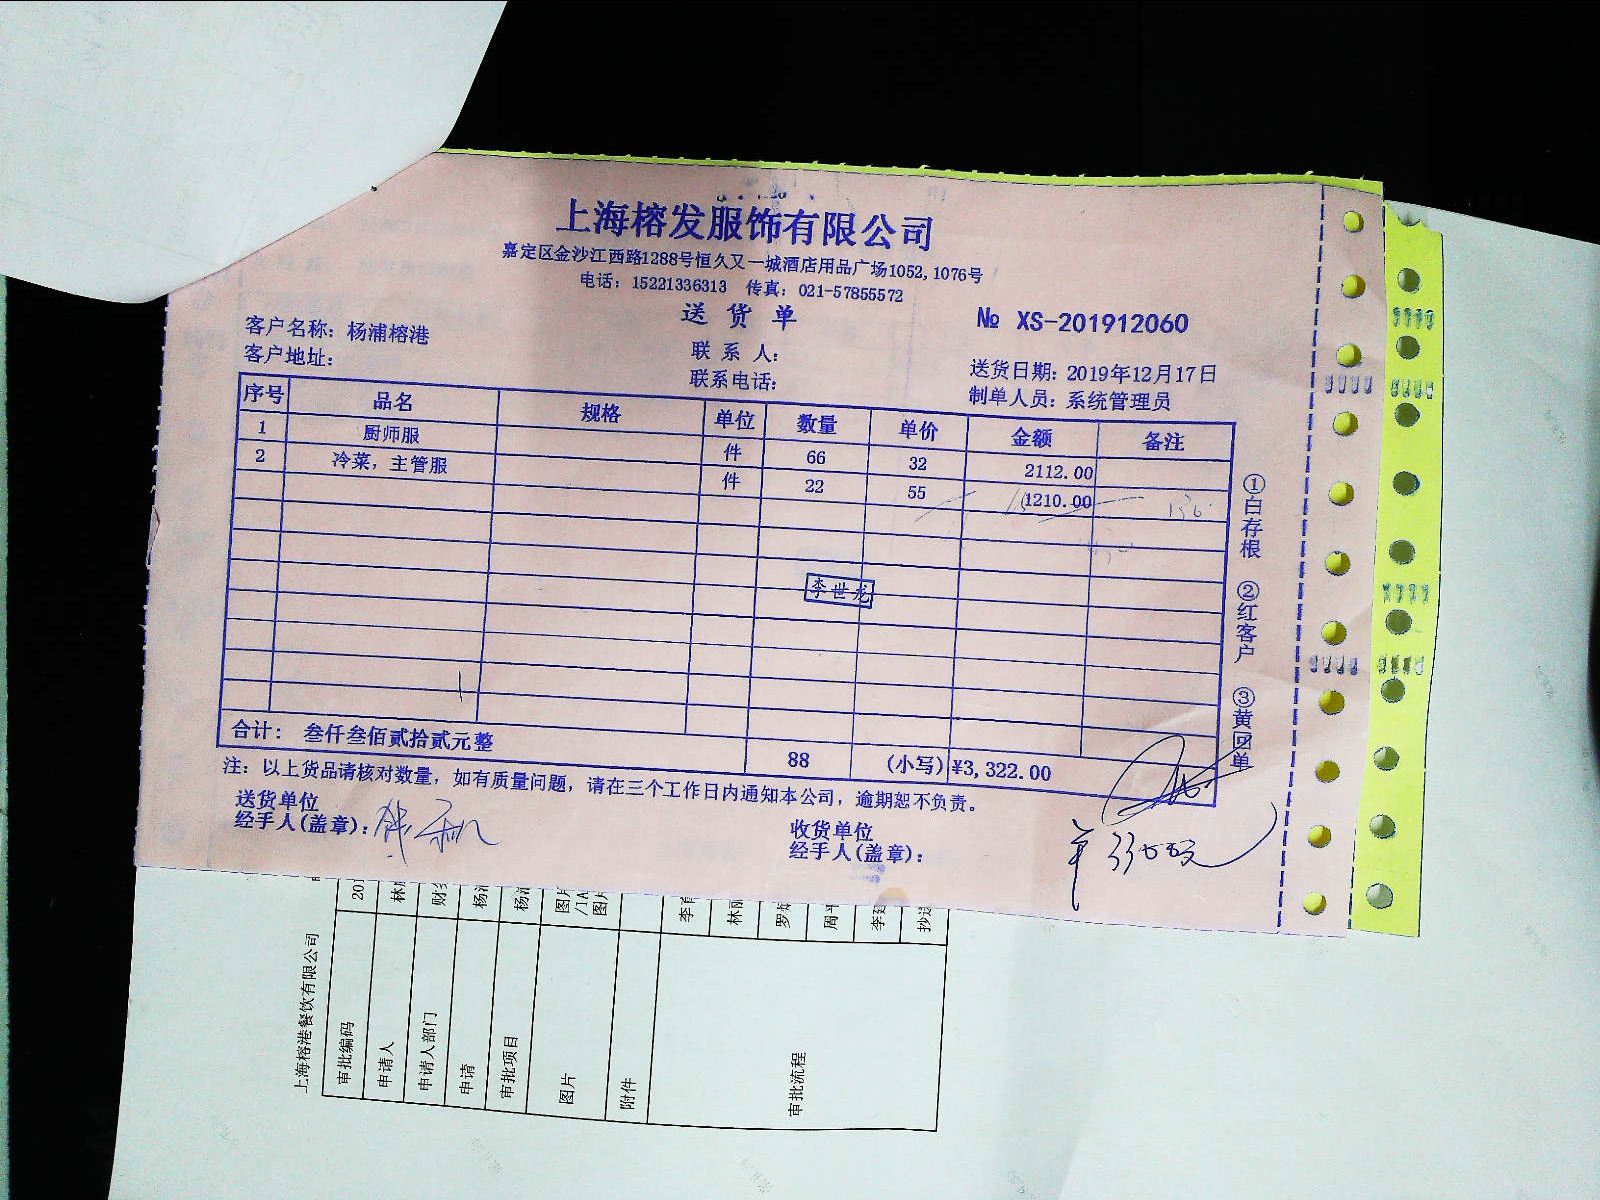 上海榕发服饰有限公司
嘉定区金沙江西路1288号恒久又一城酒店用品广场1052,1076号
电话：15221336313 传真：021-57855572
送货单
№ XS-201912060
客户名称：杨浦榕港
联系人：
送货日期：2019年12月17日
客户地址：
联系电话：
制单人员：系统管理员
序号 品名 规格 单位 数量 单价 金额 备注
1 厨师服 件 66 32 2112.00
2 冷菜，主管服 件 22 55 1210.00
李世龙
合计： 叁仟叁佰贰拾贰元整 88 (小写) ¥3,322.00
注：以上货品请核对数量，如有质量问题，请在三个工作日内通知本公司，逾期恕不负责。
送货单位
经手人(盖章)：
收货单位
经手人(盖章)：
①白存根 ②红客户 ③黄回单
上海榕港餐饮有限公司
审批编码 201
申请人 林
申请人部门 财
申请 杨
审批项目 杨
图片 图片
/IA
图片
附件
审批流程 李 林 罗 周 李 抄送